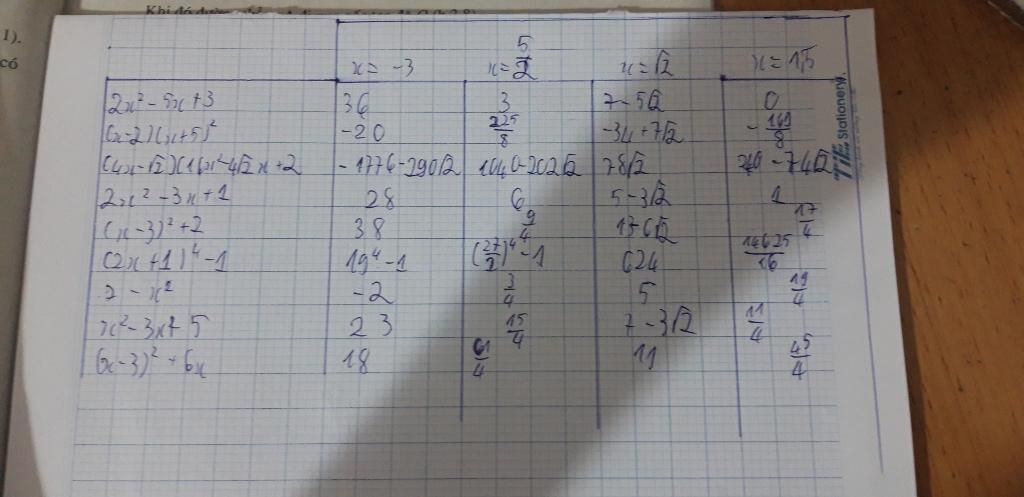 1).
có
x = -3 x = 5/2 x = √2 x = 1,5
2x² - 5x + 3 36 3 7 - 5√2 0
(x-2)(x+5)² -20 225/8 -34 + 7√2 -169/8
(4x-√2)(16x²-4√2x+2 -1776-290√2 1040-202√2 78√2 -74√2
2x² - 3x + 1 28 6 5 - 3√2 1
(x-3)² + 2 38 9/4 13-6√2 17/4
(2x+1)⁴ - 1 19⁴ - 1 (27/2)⁴ - 1 624 14625/16
2 - x² -2 3/4 5 19/4
x² - 3x + 5 23 15/4 7 - 3√2 11/4
(x-3)² + 6x 18 61/4 11 45/4
TE Stationery.